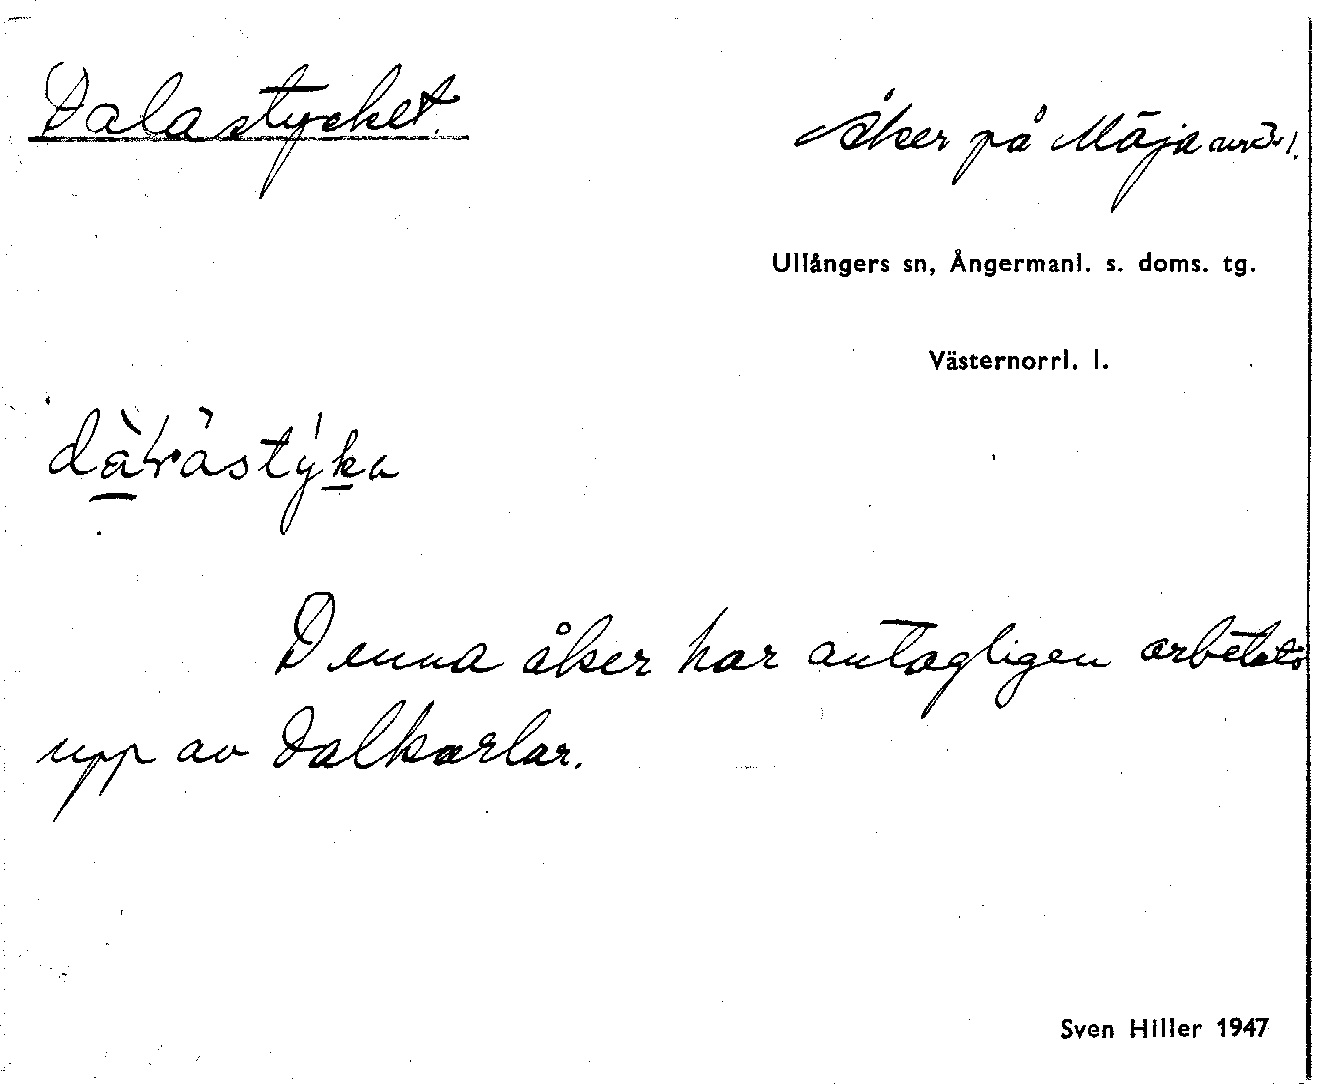 Dalastycket.
Åker på Mäja
Ullångers sn, Ångermanl. s. doms. tg.
Västernorrl. l.
Denna åker har antagligen arbetats
upp av Dalkarlar.
Sven Hiller 1947